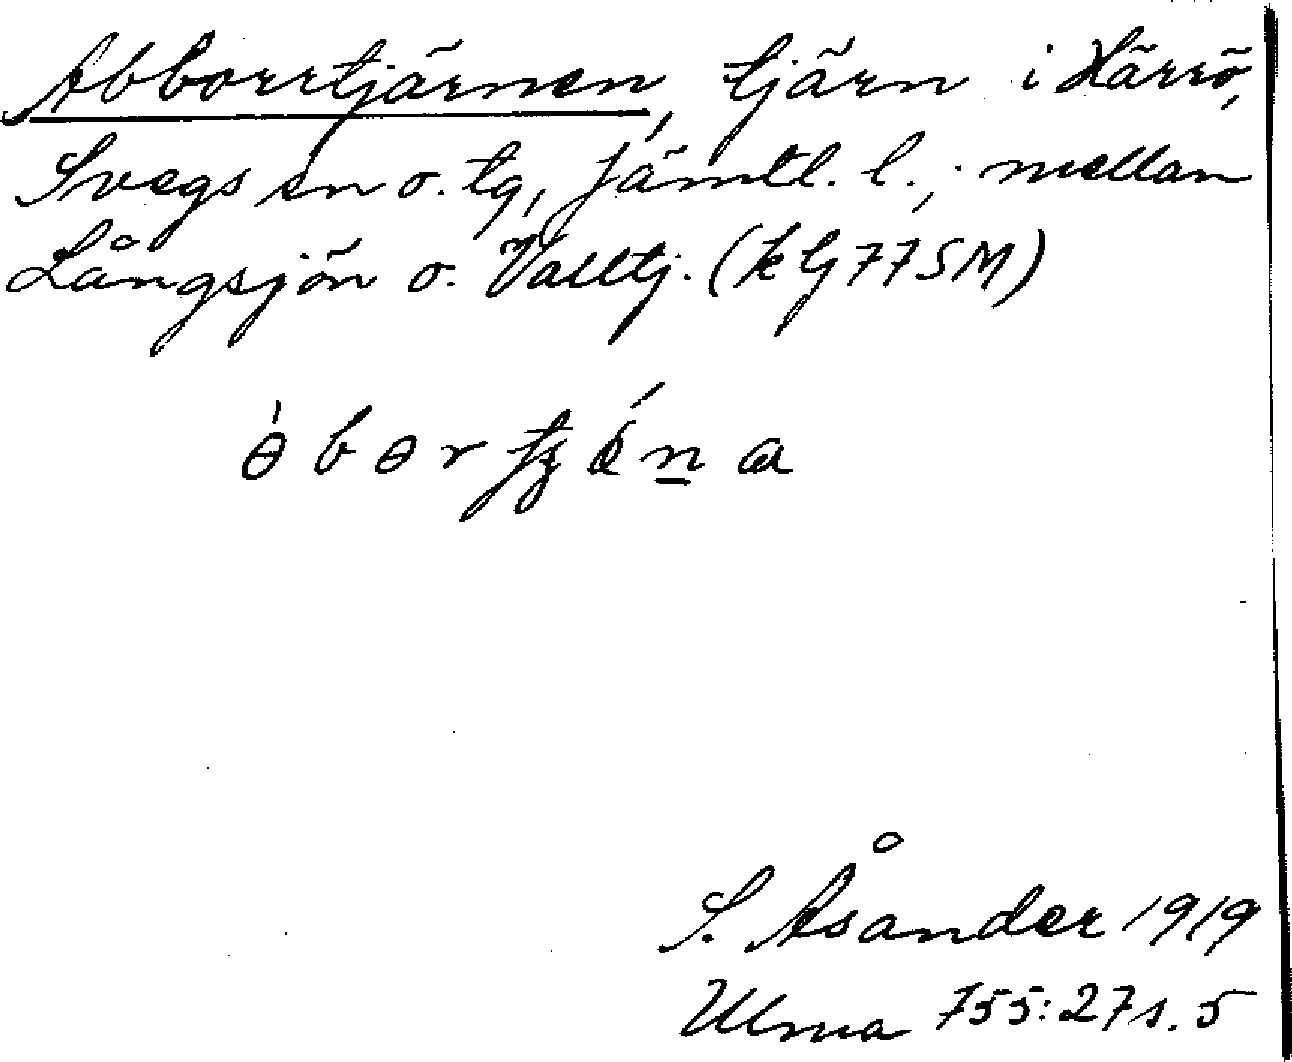 Abborrtjärnen, tjärn i Härrö,
Svegs sn o. tg, Jämtl. l.; mellan
Långsjön o. Valltj. (klj 77SM)
S. Åsander 1919
Ulma 755:27 s. 5